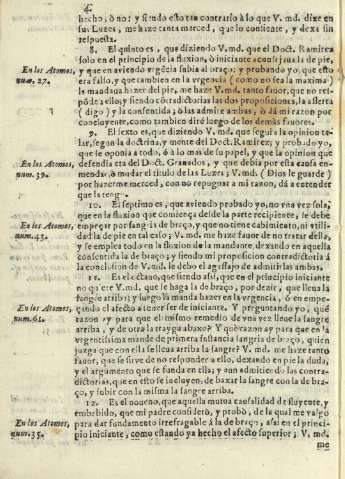 4.
hecho, ò no: y siendo esto tan contrario à lo que V. md. dixe en
sus Luzes, me haze tanta merced, que lo consiente, y dexa sin
respuesta.
8. El quinto es, que diziendo V. md. que el Doct. Ramirez
solo en el principio de la fluxion, ò iniciante aconsejaua la de pie,
En los Atomos, num. 27.
y que en aviendo vrgẽcia subia al braço: y probando yo, que esto
era falso, y que tambien en la vrgencia (como no sea la maxima)
la mandaua hazer del pie, me haze V. md. tanto fauor, que no res
põde a ello; y siendo cõtradictorias las dos proposiciones, la aserta
(digo) y la consentida; ò las admite ambas, ò dà mi razon por
concluyente, como tambien dirè luego de los demàs fauores.
9. El sexto es, que diziendo V. md. que seguia la opinion te
lar, segun la doctrina, y mente del Doct. Ramirez; y probado yo,
que se oponia a todo, ò à lo mas de su papel, y que la opinion que
En los Atomos, num. 39.
defendia era del Doct. Granados, y que debia por esta causa en-
mendar, ò mudar el titulo de las Luzes; V. md. (Dios le guarde)
por hazerme merced, con no repugnar a mi razon, dà a entender
que la tengo.
10. El septimo es, que aviendo probado yo, no vna vez sola,
que en la fluxion que comiença desde la parte recipiente, se debe
En los Atomos, num. 43.
empeçar por sangria de braço, y que no tiene cabimiento, ni vtili-
dad la de pie en tal caso; V. md. me haze fauor de no tratar della,
y se emplea todo en la fluxion de la mandante, dexando en aquella
consentida la de braço; y siendo mi proposicion contradictoria à
la conclusion de V. md. le debo el agasajo de admitirlas ambas.
11. Es el octauo, que siendo assi, que en el principio iniciante
no quiere V. md. que se haga la de braço, por dezir, que lleua la
sangre arriba; y luego la manda hazer en la vrgencia, ò en empe-
En los Atomos, num. 61.
çando el afecto à tener ser de iniciante. Y preguntando yo, què
razon ay para que el mismo remedio de vna vez lleue la sangre
arriba, y de otra la trayga abaxo? Y què razon ay para que en la
vrgentissima mande de primera instancia sangria de braço, quien
juzga que con ella se lleua arriba la sangre? V. md. me haze tanto
fauor, que se sirve de no responder a ello, dexando en pie la duda,
y el argumento que se funda en ella; y aun admitiendo las contra-
dictorias, que en esto se incluyen, de baxar la sangre con la de bra-
ço, y subir con la misma la sangre arriba.
12. Es el noueno, que aquella mutua causalidad de fluyente, y
embebido, que mi padre considerò, y probò, de la qual me valgo
En los Atomos, num. 35.
para dar fundamento irrefragable à la de braço, assi en el princi-
pio iniciante, como estando ya hecho el afecto superior; V. md.
me